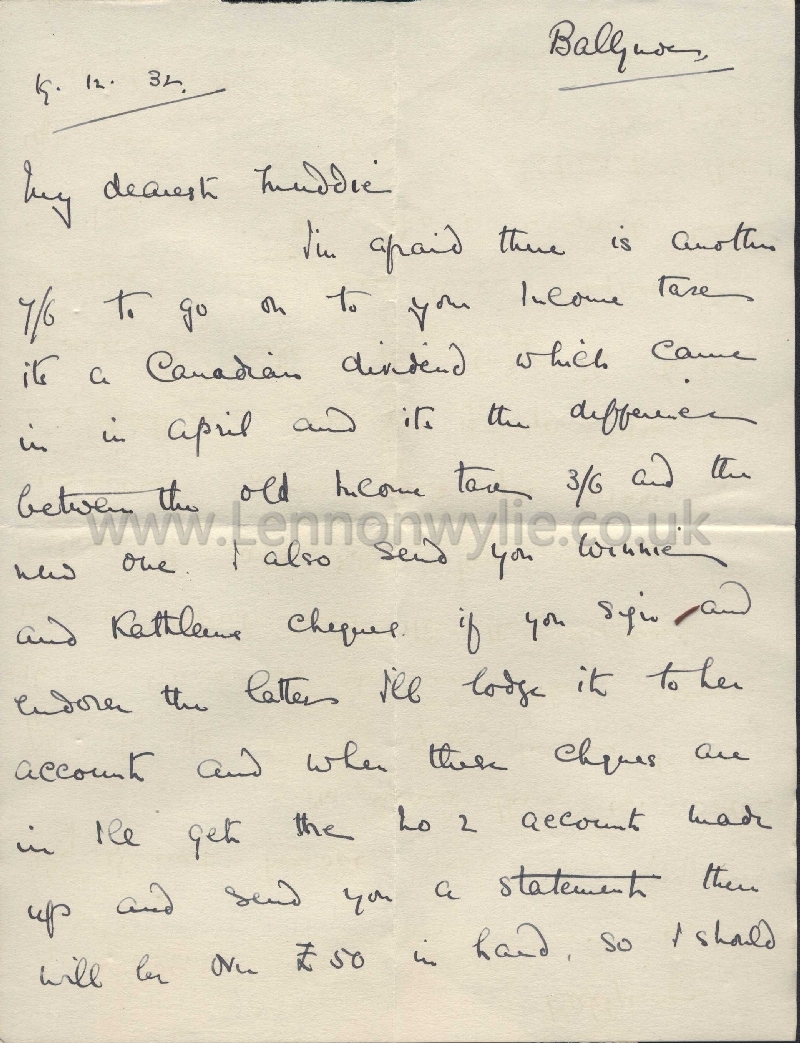 Ballynoe,
9. 12. 32.
My dearest Muddie
I'm afraid there is another
7/6 to go on to your Income taxes
its a Canadian dividend which came
in in April and its the difference
between the old Income taxes 3/6 and the
new one. I also send you Winnies
and Kathleens cheques. if you sign and
endorse the latters I'll lodge it to her
account and when these cheques are
in I'll get the No 2 account made
up and send you a statement there
will be over £50 in hand, so I should
www.Lennonwylie.co.uk